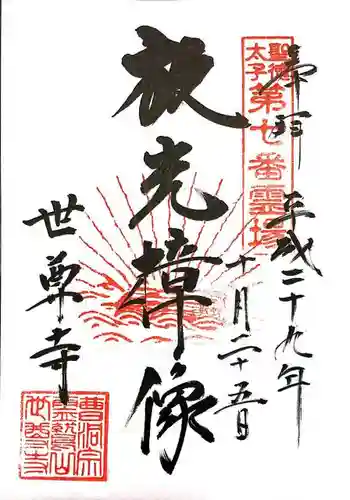 奉拝
聖徳太子
第七番霊場
平成二十九年
十月二十五日
放光樟像
世尊寺
曹洞宗
霊鷲山
世尊寺